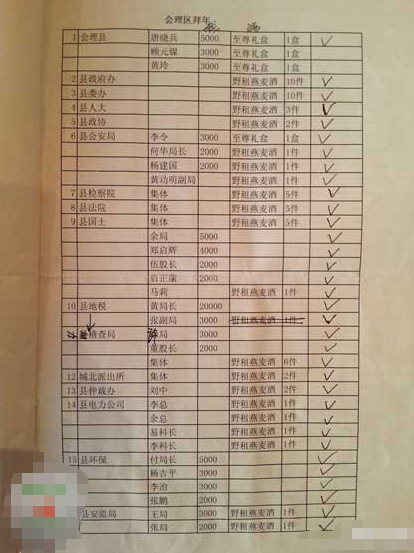 会理区拜年
酒
1 会理县 唐晓兵 5000 至尊礼盒 1盒 ✓
顾元镍 3000 至尊礼盒 1盒
黄玲 3000 至尊礼盒 1盒
2 县政府办 野租燕麦酒 10件 ✓
3 县委办 野租燕麦酒 10件 ✓
4 县人大 野租燕麦酒 3件 ✓
5 县政协 野租燕麦酒 2件 ✓
6 县公安局 李令 3000 至尊礼盒 1盒 ✓
何华局长 2000 野租燕麦酒 1件 ✓
杨建国 2000 野租燕麦酒 1件 ✓
黄功明副局 野租燕麦酒 1件 ✓
7 县检察院 集体 野租燕麦酒 5件 ✓
8 县法院 集体 野租燕麦酒 5件 ✓
9 县国土 集体 野租燕麦酒 5件 ✓
余局 5000 ✓
郑启辉 4000 ✓
伍股长 2000 ✓
启正康 2000 ✓
马莉 野租燕麦酒 1件 ✓
10 县地税 黄局长 20000 ✓
张副局 3000 野租燕麦酒 1件 ✓
稽查局 局 3000 ✓
股长 2000 ✓
集体 野租燕麦酒 6件 ✓
12 城北派出所 集体 野租燕麦酒 2件 ✓
13 县仲裁办 刘中 野租燕麦酒 2件 ✓
14 县电力公司 李总 野租燕麦酒 1件 ✓
余总 野租燕麦酒 1件 ✓
易科长 野租燕麦酒 1件 ✓
李科长 野租燕麦酒 1件 ✓
15 县环保 付局长 5000 ✓
杨吉平 3000 ✓
李治 3000 ✓
张鹏 2000 ✓
县安监局 王局 3000 野租燕麦酒 1件 ✓
张局 2000 野租燕麦酒 1件 ✓